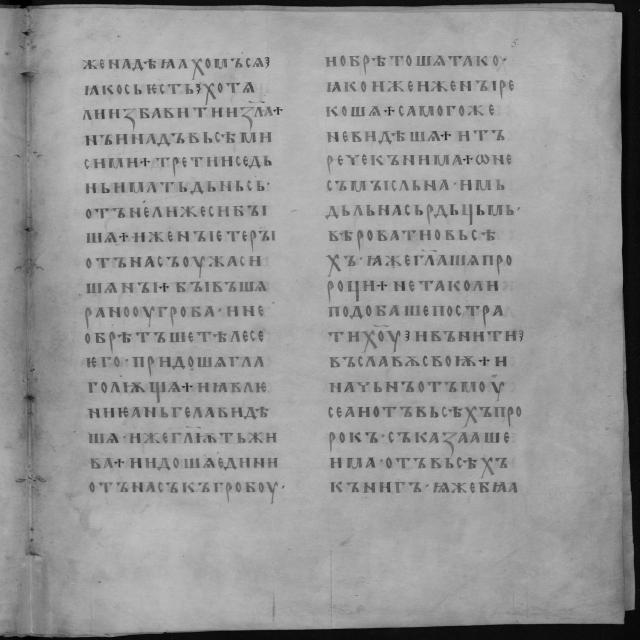 же надѣꙗхомъ сѧ
ꙗко сь ѥстъ хотѧ
и избавити из҃лꙗ+
нъ и надъ вьсѣми
сими+ третии се дь
нь имать дьньсь·
отъ нелиже си бꙑ
шѧ+ и женꙑ ѥтерꙑ
отъ насъ оужасн
шѧ нꙑ+ бꙑвъшѧ
рано оу гроба· и не
обрѣтъше тѣлесе
ѥго· придошѧ гла
голѭщѧ+ и ꙗвлю
ниѥ аньгелъ видѣ
шѧ· иже гл҃ѭть жи
ва+ и идошѧ едини
отъ насъ къ гробоу·
и обрѣтошѧ тако·
ꙗкоже и женꙑ ре
кошѧ+ самого же
не видѣшѧ+ и тъ
рече къ нима+ ѡ не
съмꙑсльна· и мь
дьльна сьрдьцьмь·
вѣровати о вьсѣ
хъ· ꙗже гл҃ашѧ про
роци+ не тако ли
подобаше пострa
ти х҃оу и вънити
въ славѫ своѭ+ и
начьнъ отъ моѵ
сеа и отъ вьсѣхъ про
рокъ· съказааше
има· отъ вьсѣхъ
кънигъ· ꙗже бѣа